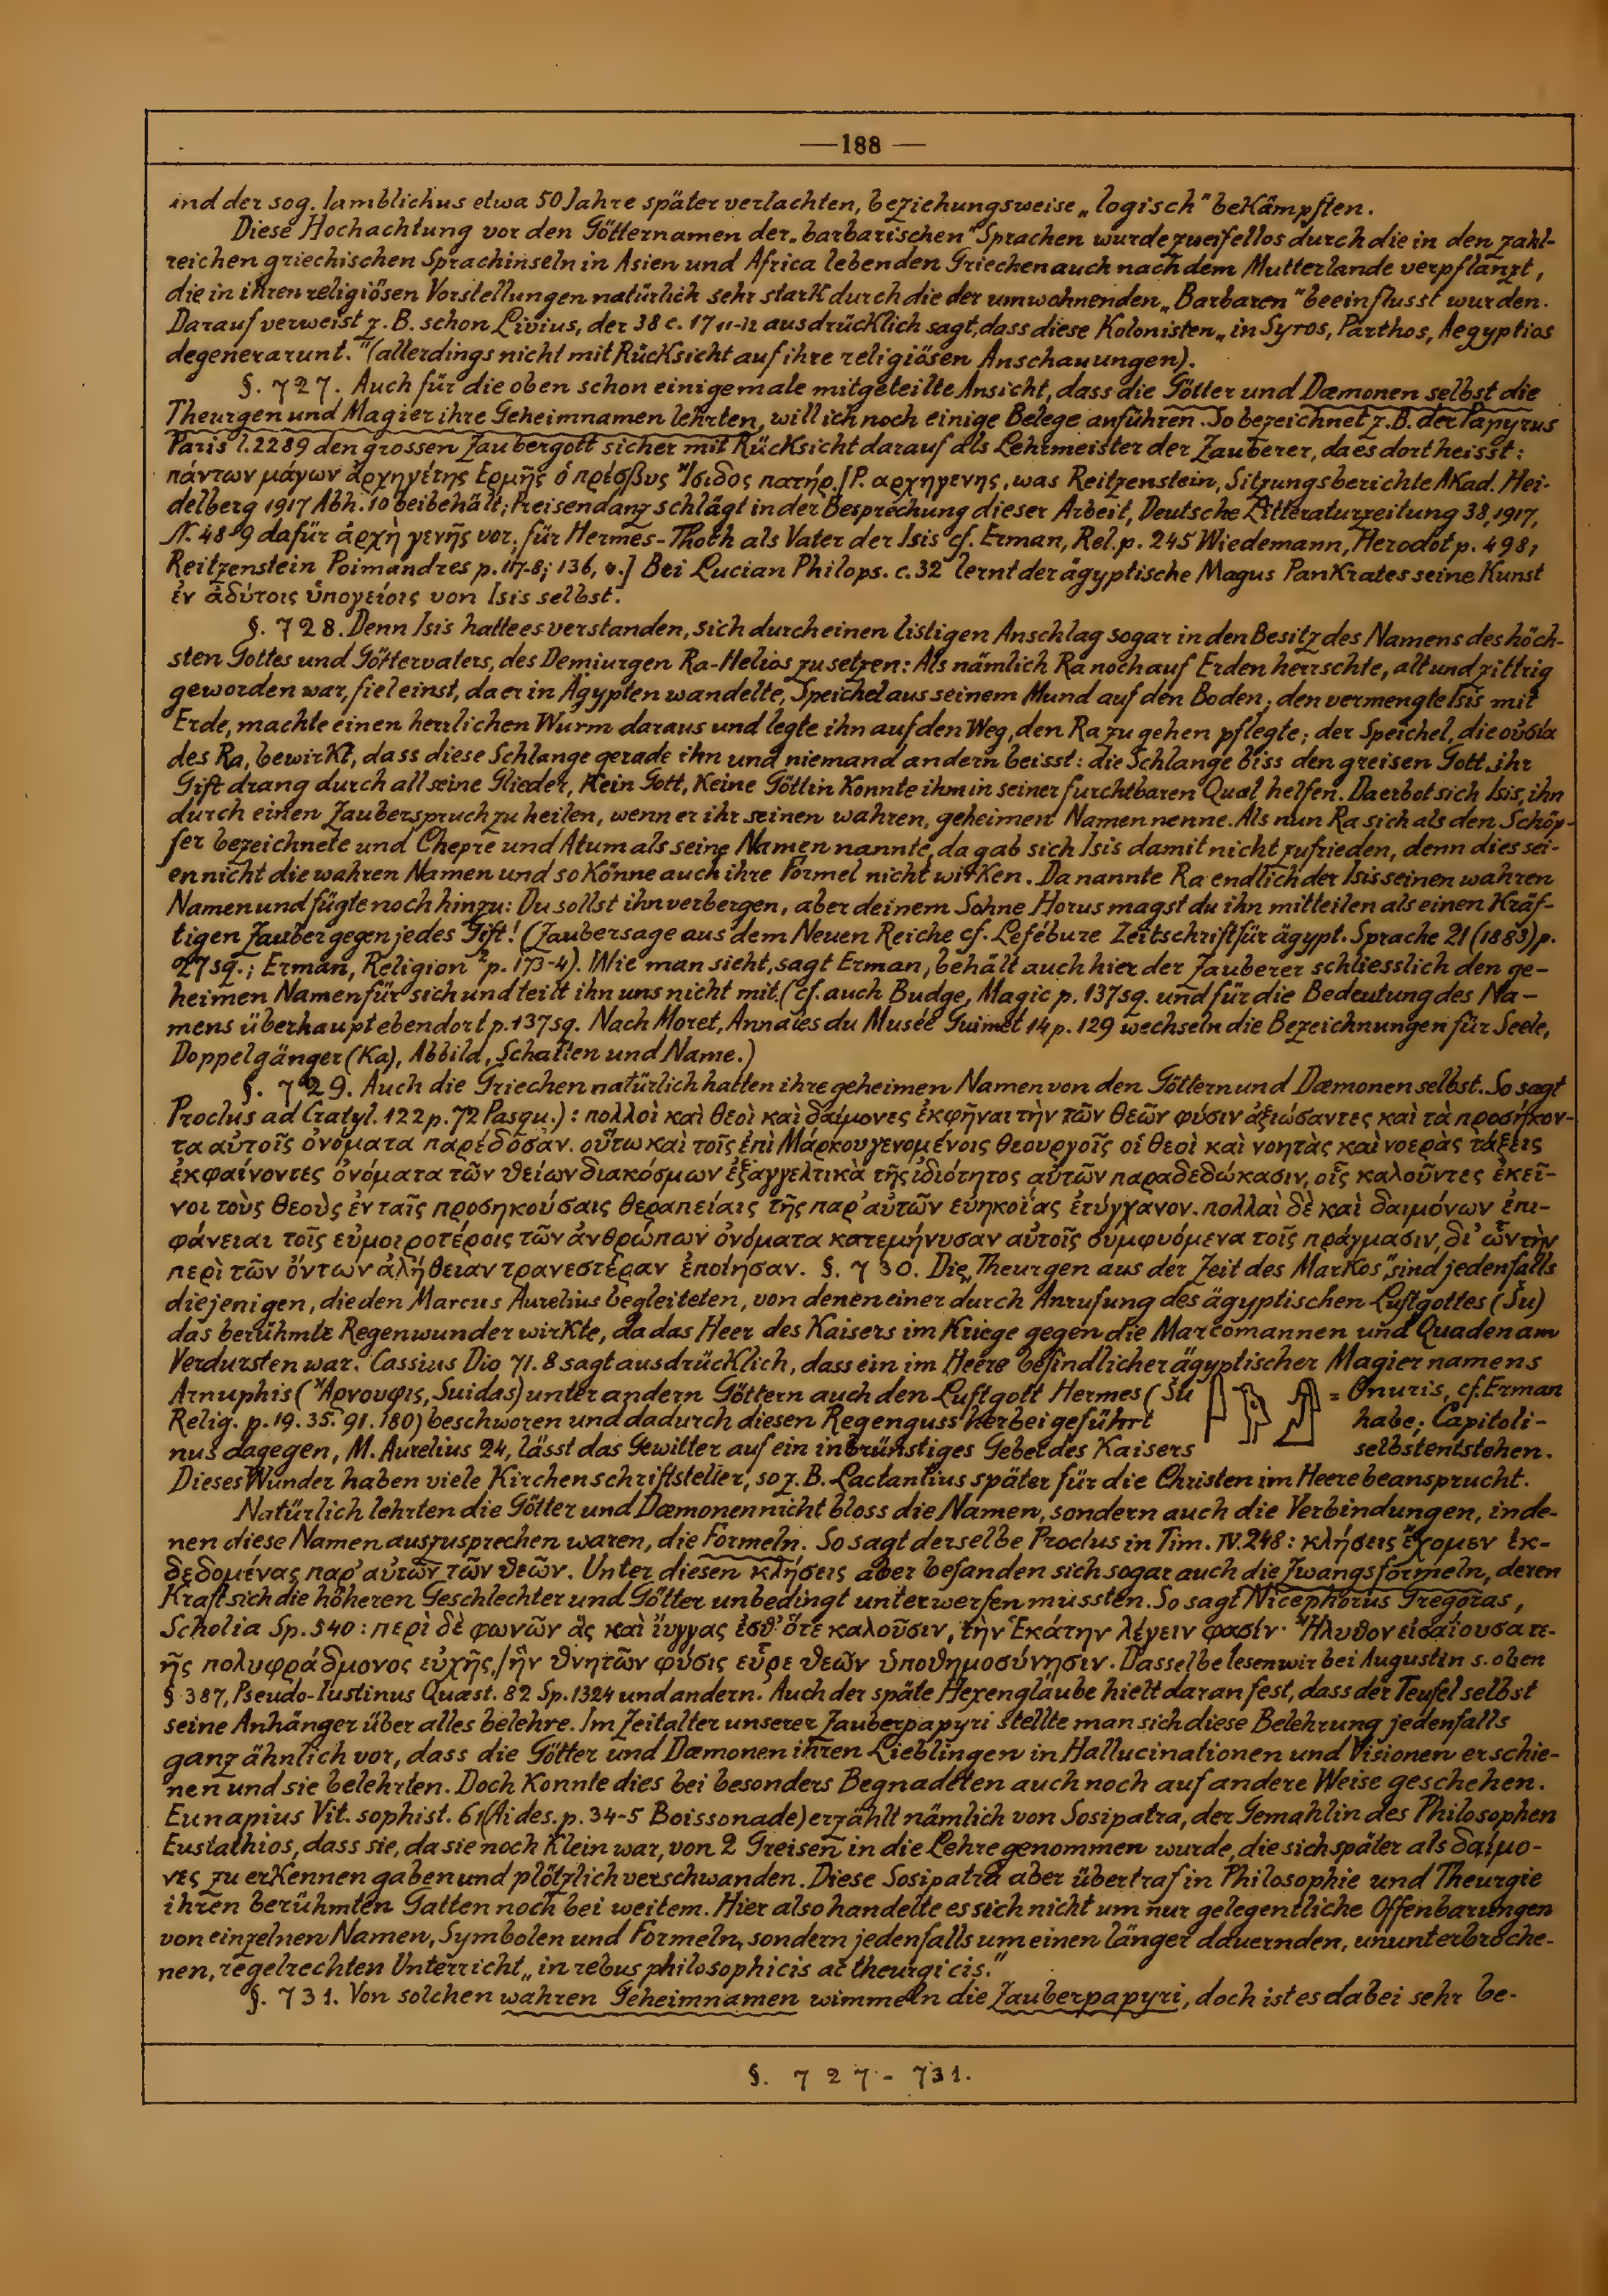 —188—
und der sog. Iamblichus etwa 50 Jahre später verlachten, beziehungsweise „logisch" bekämpften.
Diese Hochachtung vor den Götternamen der „barbarischen" Sprachen wurde zweifellos durch die in den zahl-
reichen griechischen Sprachinseln in Asien und Africa lebenden Griechen auch nach dem Mutterlande verpflanzt,
die in ihren religiösen Vorstellungen natürlich sehr stark durch die der umwohnenden „Barbaren" beeinflusst wurden.
Darauf verweist z. B. schon Livius, der 38 c. 17 11-12 ausdrücklich sagt, dass diese Kolonisten „in Syros, Parthos, Aegyptios
degenerarunt." (allerdings nicht mit Rücksicht auf ihre religiösen Anschauungen).
§. 727. Auch für die oben schon einigemale mitgeteilte Ansicht, dass die Götter und Dæmonen selbst die
Theurgen und Magier ihre Geheimnamen lehrten, will ich noch einige Belege anführen. So bezeichnet z. B. der Papyrus
Paris l. 2289 den grossen Zaubergott sicher mit Rücksicht darauf als Lehrmeister der Zauberer, da es dort heisst:
πάντων μάγων ἀρχηγέτης Ερμῆς ὁ πρέσβυς Ἴσιδος πατήρ. [P. αρχηγενης, was Reitzenstein, Sitzungsberichte Akad. Hei-
delberg 1917 Abh. 10 beibehält; Preisendanz schlägt in der Besprechung dieser Arbeit, Deutsche Litteraturzeitung 38, 1917,
N. 48-9 dafür ἀρχὴ γενῆς vor; für Hermes-Thoth als Vater der Isis cf. Erman, Rel. p. 245 Wiedemann, Herodot p. 498,
Reitzenstein Poimandres p. 117-8; 136, 4.] Bei Lucian Philops. c. 32 lernt der ägyptische Magus Pankrates seine Kunst
ἐν ἀδύτοις ὑπογείοις von Isis selbst.
§. 728. Denn Isis hatte es verstanden, sich durch einen listigen Anschlag sogar in den Besitz des Namens des höch-
sten Gottes und Göttervaters, des Demiurgen Ra-Helios zu setzen: Als nämlich Ra noch auf Erden herrschte, alt und zittrig
geworden war, fiel einst, da er in Ägypten wandelte, Speichel aus seinem Mund auf den Boden; den vermengte Isis mit
Erde, machte einen herrlichen Wurm daraus und legte ihn auf den Weg, den Ra zu gehen pflegte; der Speichel, die οὐσία
des Ra, bewirkt, dass diese Schlange gerade ihn und niemand andern beisst: die Schlange biss den greisen Gott, ihr
Gift drang durch all seine Glieder, kein Gott, keine Göttin konnte ihm in seiner furchtbaren Qual helfen. Da erbot sich Isis, ihn
durch einen Zauberspruch zu heilen, wenn er ihr seinen wahren, geheimen Namen nenne. Als nun Ra sich als den Schöp-
fer bezeichnete und Chepre und Atum als seine Namen nannte, da gab sich Isis damit nicht zufrieden, denn dies sei-
en nicht die wahren Namen und so könne auch ihre Formel nicht wirken. Da nannte Ra endlich der Isis seinen wahren
Namen und fügte noch hinzu: Du sollst ihn verbergen, aber deinem Sohne Horus magst du ihn mitteilen als einen kräf-
tigen Zauber gegen jedes Gift! (Zaubersage aus dem Neuen Reiche cf. Lefébure Zeitschrift für ägypt. Sprache 21 (1883) p.
27 sq.; Erman, Religion ² p. 173-4). Wie man sieht, sagt Erman, behält auch hier der Zauberer schliesslich den ge-
heimen Namen für sich und teilt ihn uns nicht mit. (cf. auch Budge, Magic p. 137 sq. und für die Bedeutung des Na-
mens überhaupt ebendort p. 137 sq. Nach Moret, Annales du Musée Guimet 14 p. 129 wechseln die Bezeichnungen für Seele,
Doppelgänger (Ka), Abbild, Schatten und Name.)
§. 729. Auch die Griechen natürlich hatten ihre geheimen Namen von den Göttern und Dæmonen selbst. So sagt
Proclus ad Cratyl. 122 p. 72 Pasqu.): πολλοὶ καὶ θεοὶ καὶ δαίμονες ἐκφῆναι τὴν τῶν θεῶν φύσιν ἀξιώσαντες καὶ τὰ προσήκον-
τα αὐτοῖς ὀνόματα παρέδοσαν. οὕτω καὶ τοῖς ἐπὶ Μάρκου γενομένοις θεουργοῖς οἱ θεοὶ καὶ νοητὰς καὶ νοερὰς τάξεις
ἐκφαίνοντες ὀνόματα τῶν θείων διακόσμων ἐξαγγελτικὰ τῆς ἰδιότητος αὐτῶν παραδεδώκασιν, οἷς καλοῦντες ἐκεῖ-
νοι τοὺς θεοὺς ἐν ταῖς προσηκούσαις θεραπείαις τῆς παρ' αὐτῶν εὐηκοίας ἐτύγχανον. πολλαὶ δὲ καὶ δαιμόνων ἐπι-
φάνειαι τοῖς εὐμοιροτέροις τῶν ἀνθρώπων ὀνόματα κατεμήνυσαν αὐτοῖς συμφυόμενα τοῖς πράγμασιν, δι' ὧν τὴν
περὶ τῶν ὄντων ἀλήθειαν τρανεστέραν ἐποίησαν. §. 730. Die „Theurgen aus der Zeit des Markos" sind jedenfalls
diejenigen, die den Marcus Aurelius begleiteten, von denen einer durch Anrufung des ägyptischen Luftgottes (Šu)
das berühmte Regenwunder wirkte, da das Heer des Kaisers im Kriege gegen die Marcomannen und Quaden am
Verdursten war. Cassius Dio 71. 8 sagt ausdrücklich, dass ein im Heere befindlicher ägyptischer Magier namens
Arnuphis (Ἄρνουφις, Suidas) unter andern Göttern auch den Luftgott Hermes (Šu = Onuris, cf. Erman
Relig. p. 19. 35. 91. 180) beschworen und dadurch diesen Regenguss herbeigeführt habe; Capitoli-
nus dagegen, M. Aurelius 24, lässt das Gewitter auf ein inbrünstiges Gebet des Kaisers selbst entstehen.
Dieses Wunder haben viele Kirchenschriftsteller, so z. B. Lactantius später für die Christen im Heere beansprucht.
Natürlich lehrten die Götter und Dæmonen nicht bloss die Namen, sondern auch die Verbindungen, in de-
nen diese Namen auszusprechen waren, die Formeln. So sagt derselbe Proclus in Tim. IV. 248: κλήσεις ἔχομεν ἐκ-
δεδομένας παρ' αὐτῶν τῶν θεῶν. Unter diesen κλήσεις aber befanden sich sogar auch die Zwangsformeln, deren
Kraft sich die höheren Geschlechter und Götter unbedingt unterwerfen mussten. So sagt Nicephorus Gregoras,
Scholia Sp. 540: περὶ δὲ φωνῶν ἃς καὶ ἴυγγας ἔσθ' ὅτε καλοῦσιν, τὴν Ἑκάτην λέγειν φασίν· Ἤλυθον εἰσαΐουσα τε-
ῆς πολυφράδμονος εὐχῆς,/ἣν θνητῶν φύσις εὗρε θεῶν ὑποθημοσύνησιν. Dasselbe lesen wir bei Augustin s. oben
§ 387, Pseudo-Iustinus Quæst. 82 Sp. 1324 und andern. Auch der späte Hexenglaube hielt daran fest, dass der Teufel selbst
seine Anhänger über alles belehre. Im Zeitalter unserer Zauberpapyri stellte man sich diese Belehrung jedenfalls
ganz ähnlich vor, dass die Götter und Dæmonen ihren Lieblingen in Hallucinationen und Visionen erschie-
nen und sie belehrten. Doch konnte dies bei besonders Begnadeten auch noch auf andere Weise geschehen.
Eunapius Vit. sophist. 61 (Aides. p. 34-5 Boissonade) erzählt nämlich von Sosipatra, der Gemahlin des Philosophen
Eustathios, dass sie, da sie noch klein war, von 2 Greisen in die Lehre genommen wurde, die sich später als δαίμο-
νες zu erkennen gaben und plötzlich verschwanden. Diese Sosipatra aber übertraf in Philosophie und Theurgie
ihren berühmten Gatten noch bei weitem. Hier also handelte es sich nicht um nur gelegentliche Offenbarungen
von einzelnen Namen, Symbolen und Formeln, sondern jedenfalls um einen länger dauernden, ununterbroche-
nen, regelrechten Unterricht „in rebus philosophicis ac theurgicis."
§. 731. Von solchen wahren Geheimnamen wimmeln die Zauberpapyri, doch ist es dabei sehr be-
§. 727-731.